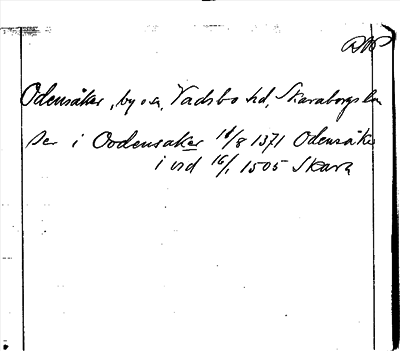 Odensåker, by o sn, Vadsbo hd, Skaraborgs län
Der i Oodensaker 14/8 1371 Odensåker
i vid 16/1 1505 Skara